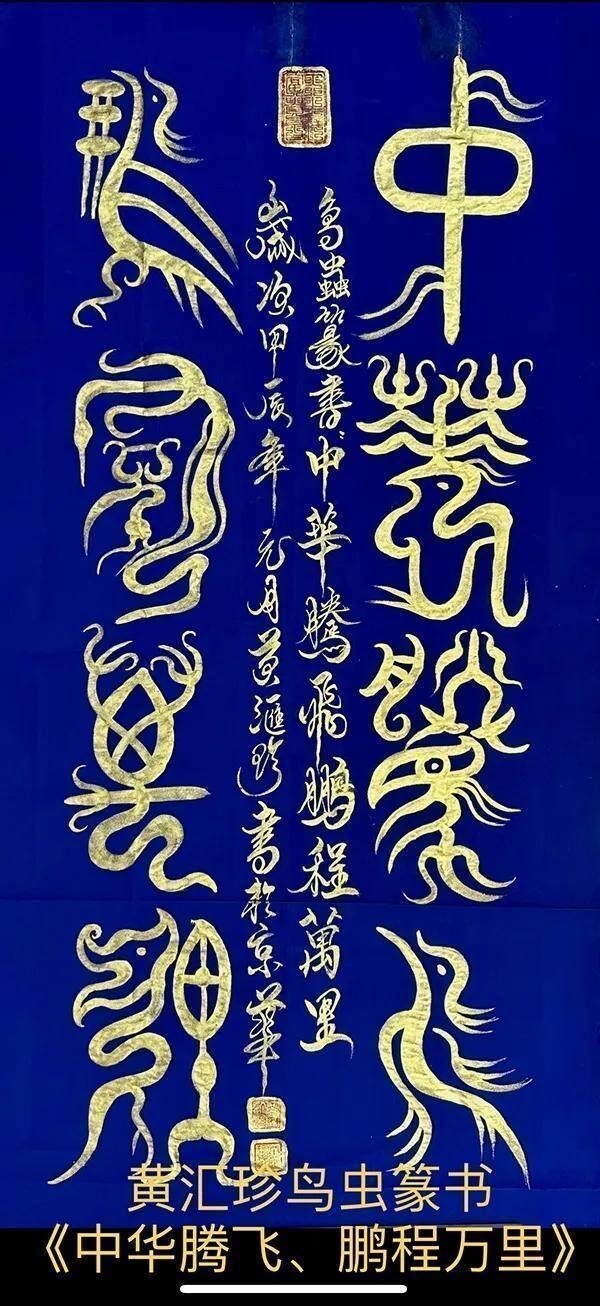 中華騰飛
鳥蟲篆書中華騰飛鵬程萬里
歲次甲辰年元月黃滙珍書於京華
鵬程萬里
黄汇珍鸟虫篆书
《中华腾飞、鹏程万里》